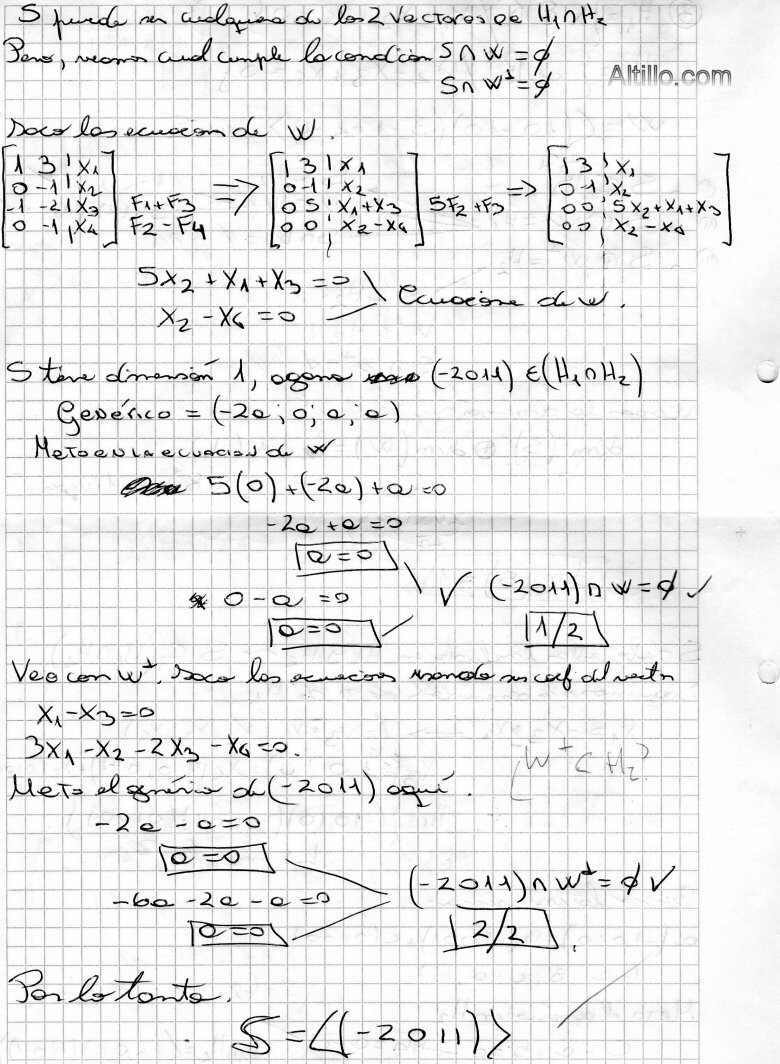 S puede ser cualquiera de los 2 vectores de H₁∩H₂
Pero, veamos cual cumple la condición S∩W=∅
S∩W⊥=∅
Altillo.com
Saco las ecuacion de W.
[1 3 | X₁
0 -1 | X₂
-1 -2 | X₃
0 -1 | X₄] F₁+F₃ F₂-F₄ ⇒ [1 3 | X₁
0 -1 | X₂
0 5 | X₁+X₃
0 0 | X₂-X₄] 5F₂+F₃ ⇒ [1 3 | X₁
0 -1 | X₂
0 0 | 5X₂+X₁+X₃
0 0 | X₂-X₄]
5X₂+X₁+X₃=0
X₂-X₄=0 Ecuacione de W.
S tiene dimensión 1, agarro (-2011) ∈(H₁∩H₂)
Genérico = (-2a; 0; a; a)
Meto en la ecuacion de W
5(0)+(-2a)+a=0
-2a+a=0
a=0
0-a=0
a=0
✓ (-2011)∩W=∅ ✓
1/2
Veo con W⊥. Saco las ecuaciones usando sus coef del vector
X₁-X₃=0
3X₁-X₂-2X₃-X₄=0.
¿W⊥⊂H₂?
Meto el genérico de (-2011) aquí.
-2a-a=0
a=0
-6a-2a-a=0
a=0
(-2011)∩W⊥=∅ ✓
2/2
Por lo tanto.
S=⟨(-2011)⟩